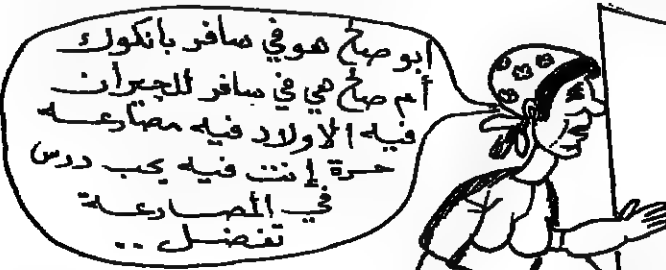 أبو صالح هو في سافر بانكوك
أم صالح هي في سافر للجيران
فيه الاولاد فيه مصارعه
حرة إنت فيه يحب درس
في المصارعة
تفضل ..